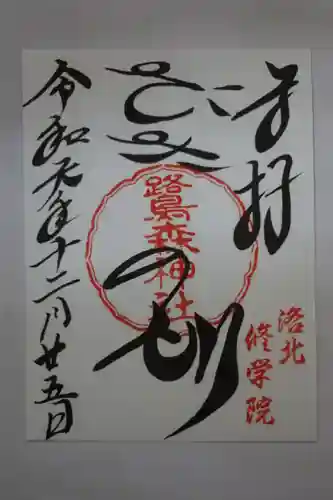 奉拝
洛北
修学院
さぎのもり
鷺森神社
令和元年十二月廿五日